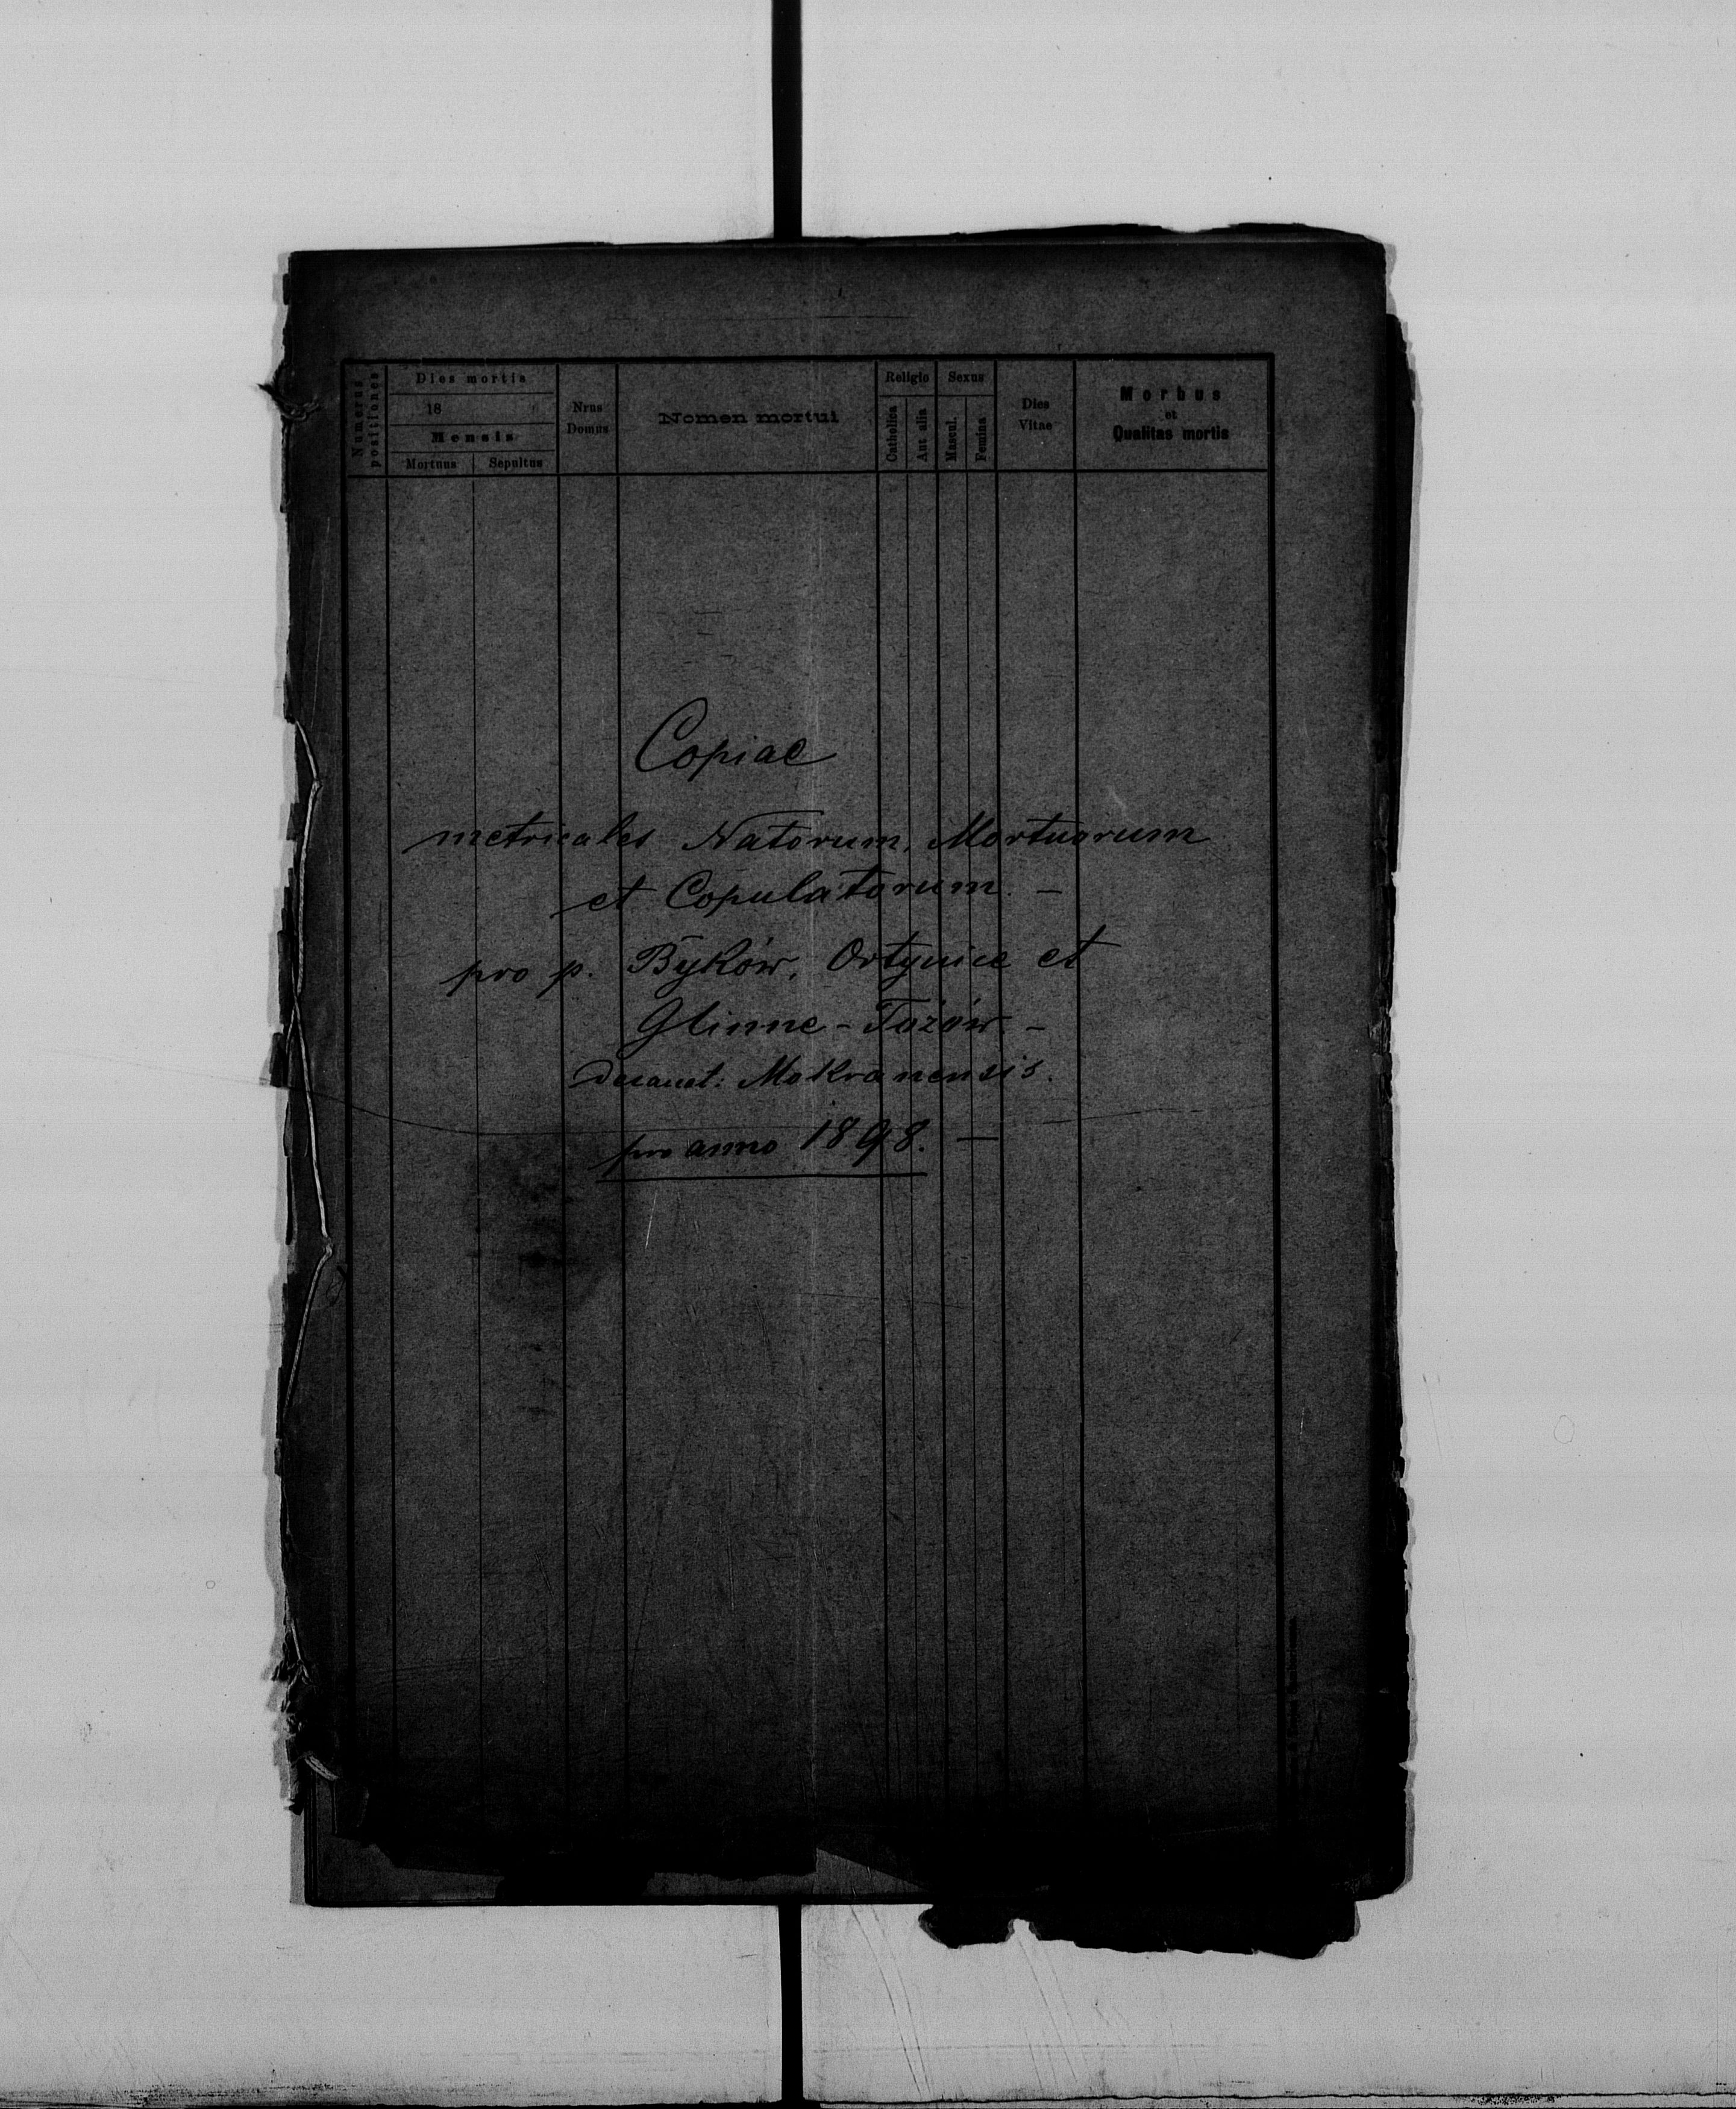 Numerus positiones
Dies mortis
18
Mensis
Mortuus Sepultus
Nrus Domus
Nomen mortui
Religio
Catholica Aut alia
Sexus
Mascul. Femina
Dies Vitae
Morbus
et
Qualitas mortis
Copiae
metricales Natorum, Mortuorum
et Copulatorum. –
pro p. Byków, Ortynice et
Glinne – Tożów. –
Decanat: Mokranensis.
pro anno 1898. —